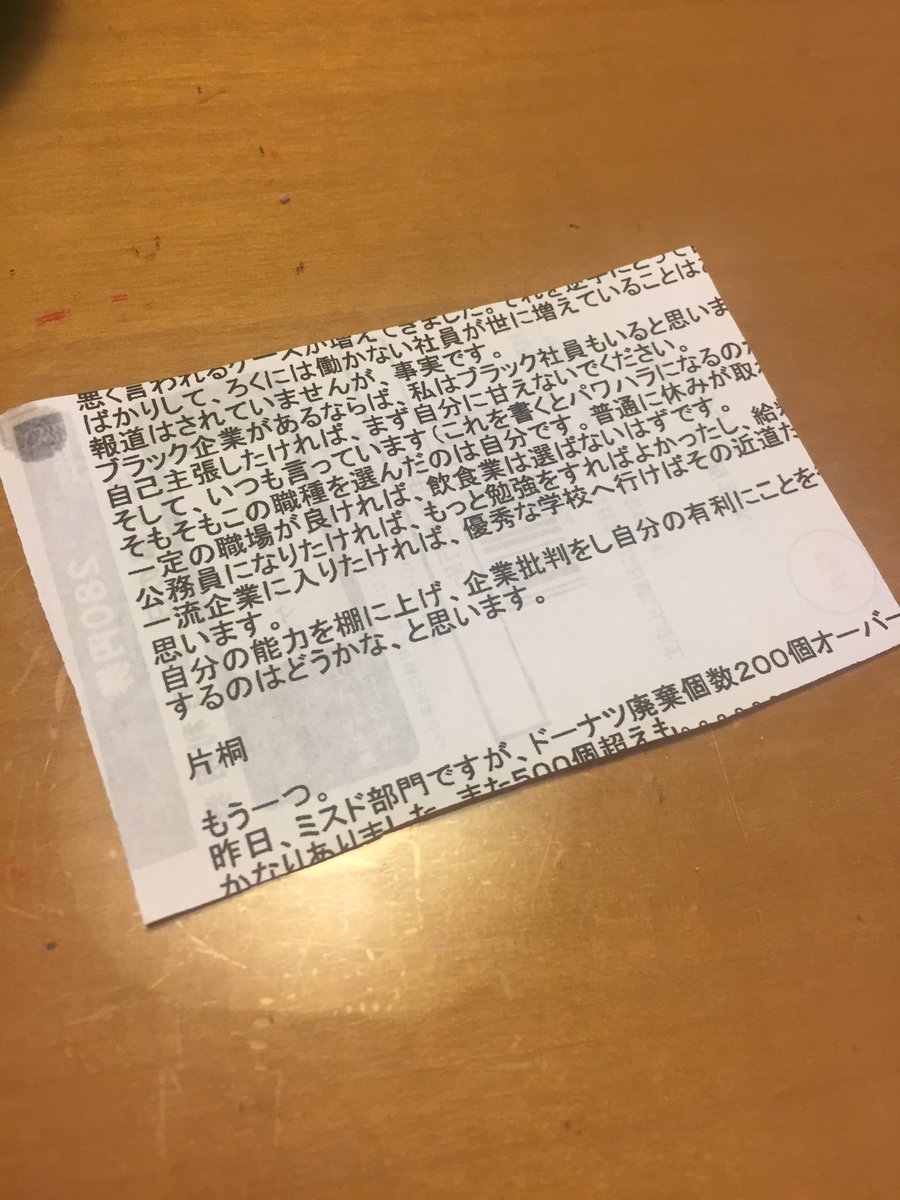 悪く言われるケースが増えてきました。それを逆手にとって
ばかりして、ろくには働かない社員が世に増えていることは
報道はされていませんが、事実です。
ブラック企業があるならば、私はブラック社員もいると思いま
自己主張したければ、まず自分に甘えないでください。
そして、いつも言っています(これを書くとパワハラになるのか
そもそもこの職種を選んだのは自分です。普通に休みが取れ
一定の職場が良ければ、飲食業は選ばないはずです。 給料
公務員になりたければ、もっと勉強をすればよかったし、
一流企業に入りたければ、優秀な学校へ行けばその近道だ
思います。
自分の能力を棚に上げ、企業批判をし自分の有利にことを
するのはどうかな、と思います。
片桐
もう一つ。
昨日、ミスド部門ですが、ドーナツ廃棄個数200個オーバー
かなりありました。また500個超えも。。。。。。